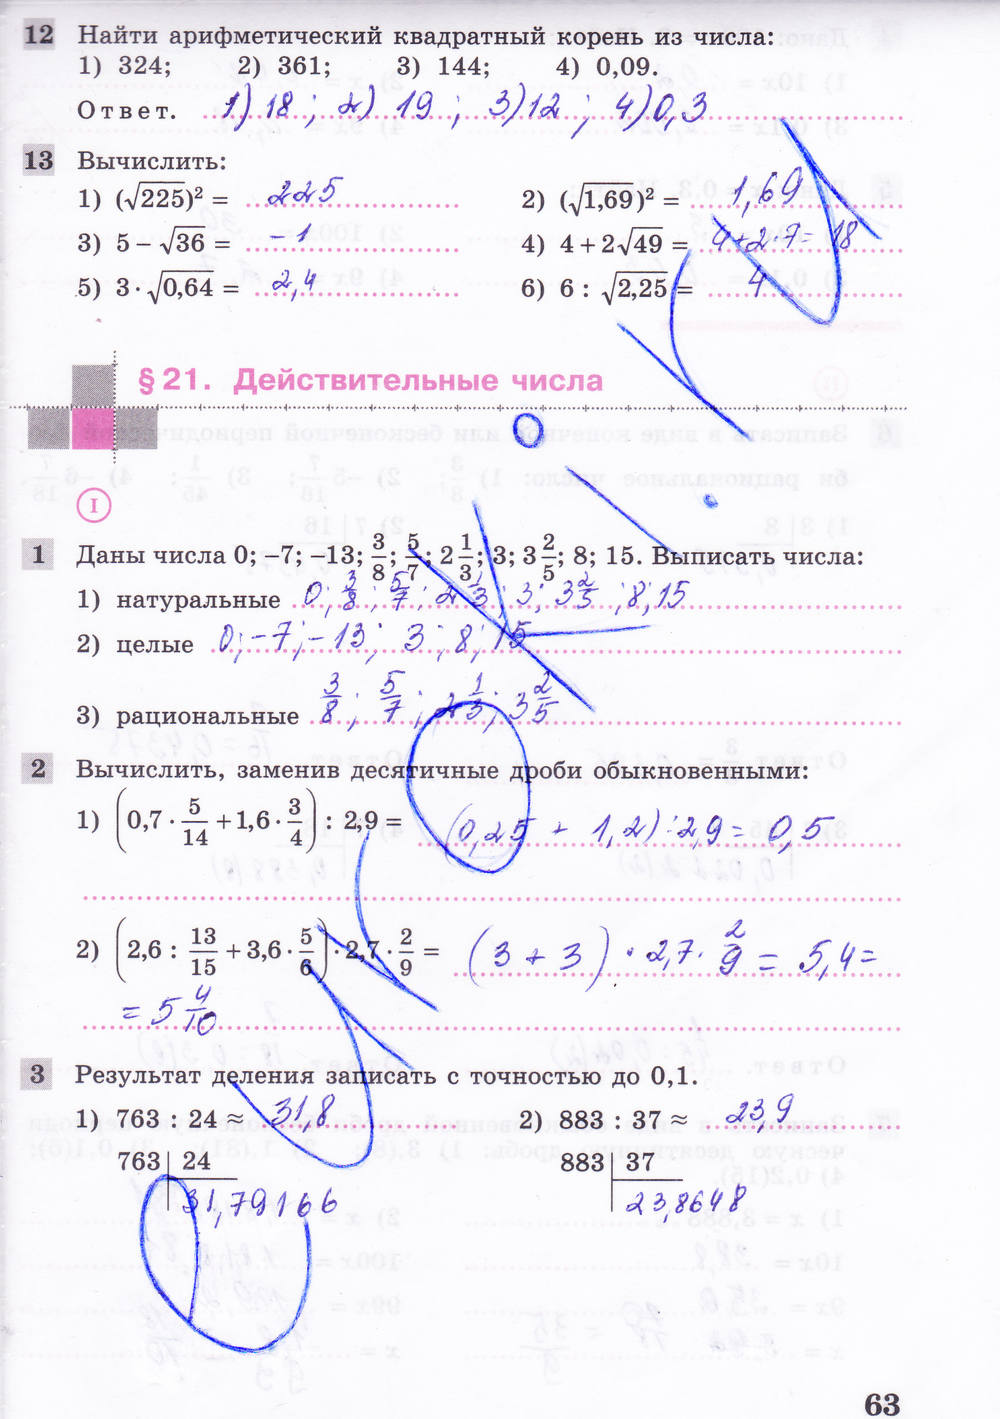 12 Найти арифметический квадратный корень из числа:
1) 324; 2) 361; 3) 144; 4) 0,09.
Ответ. 1) 18 ; 2) 19 ; 3) 12 ; 4) 0,3
13 Вычислить:
1) (√225)² = 225 2) (√1,69)² = 1,69
3) 5 − √36 = −1 4) 4 + 2√49 = 4+2·7=18
5) 3 · √0,64 = 2,4 6) 6 : √2,25 = 4
§ 21. Действительные числа
I
1 Даны числа 0; −7; −13; 3/8; 5/7; 2 1/3; 3; 3 2/5; 8; 15. Выписать числа:
1) натуральные 0; 3/8; 5/7; 2 1/3; 3; 3 2/5; 8; 15
2) целые 0; −7; −13; 3; 8; 15
3) рациональные 3/8; 5/7; 2 1/3; 3 2/5
2 Вычислить, заменив десятичные дроби обыкновенными:
1) (0,7 · 5/14 + 1,6 · 3/4) : 2,9 = (0,25 + 1,2) : 2,9 = 0,5
2) (2,6 : 13/15 + 3,6 · 5/6) · 2,7 · 2/9 = (3 + 3) · 2,7 · 2/9 = 5,4 =
= 5 4/10
3 Результат деления записать с точностью до 0,1.
1) 763 : 24 ≈ 31,8 2) 883 : 37 ≈ 23,9
763 24 883 37
31,79166 23,8648
63